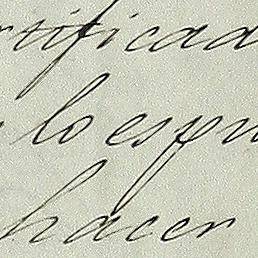 rsificad
lo espu
hacer